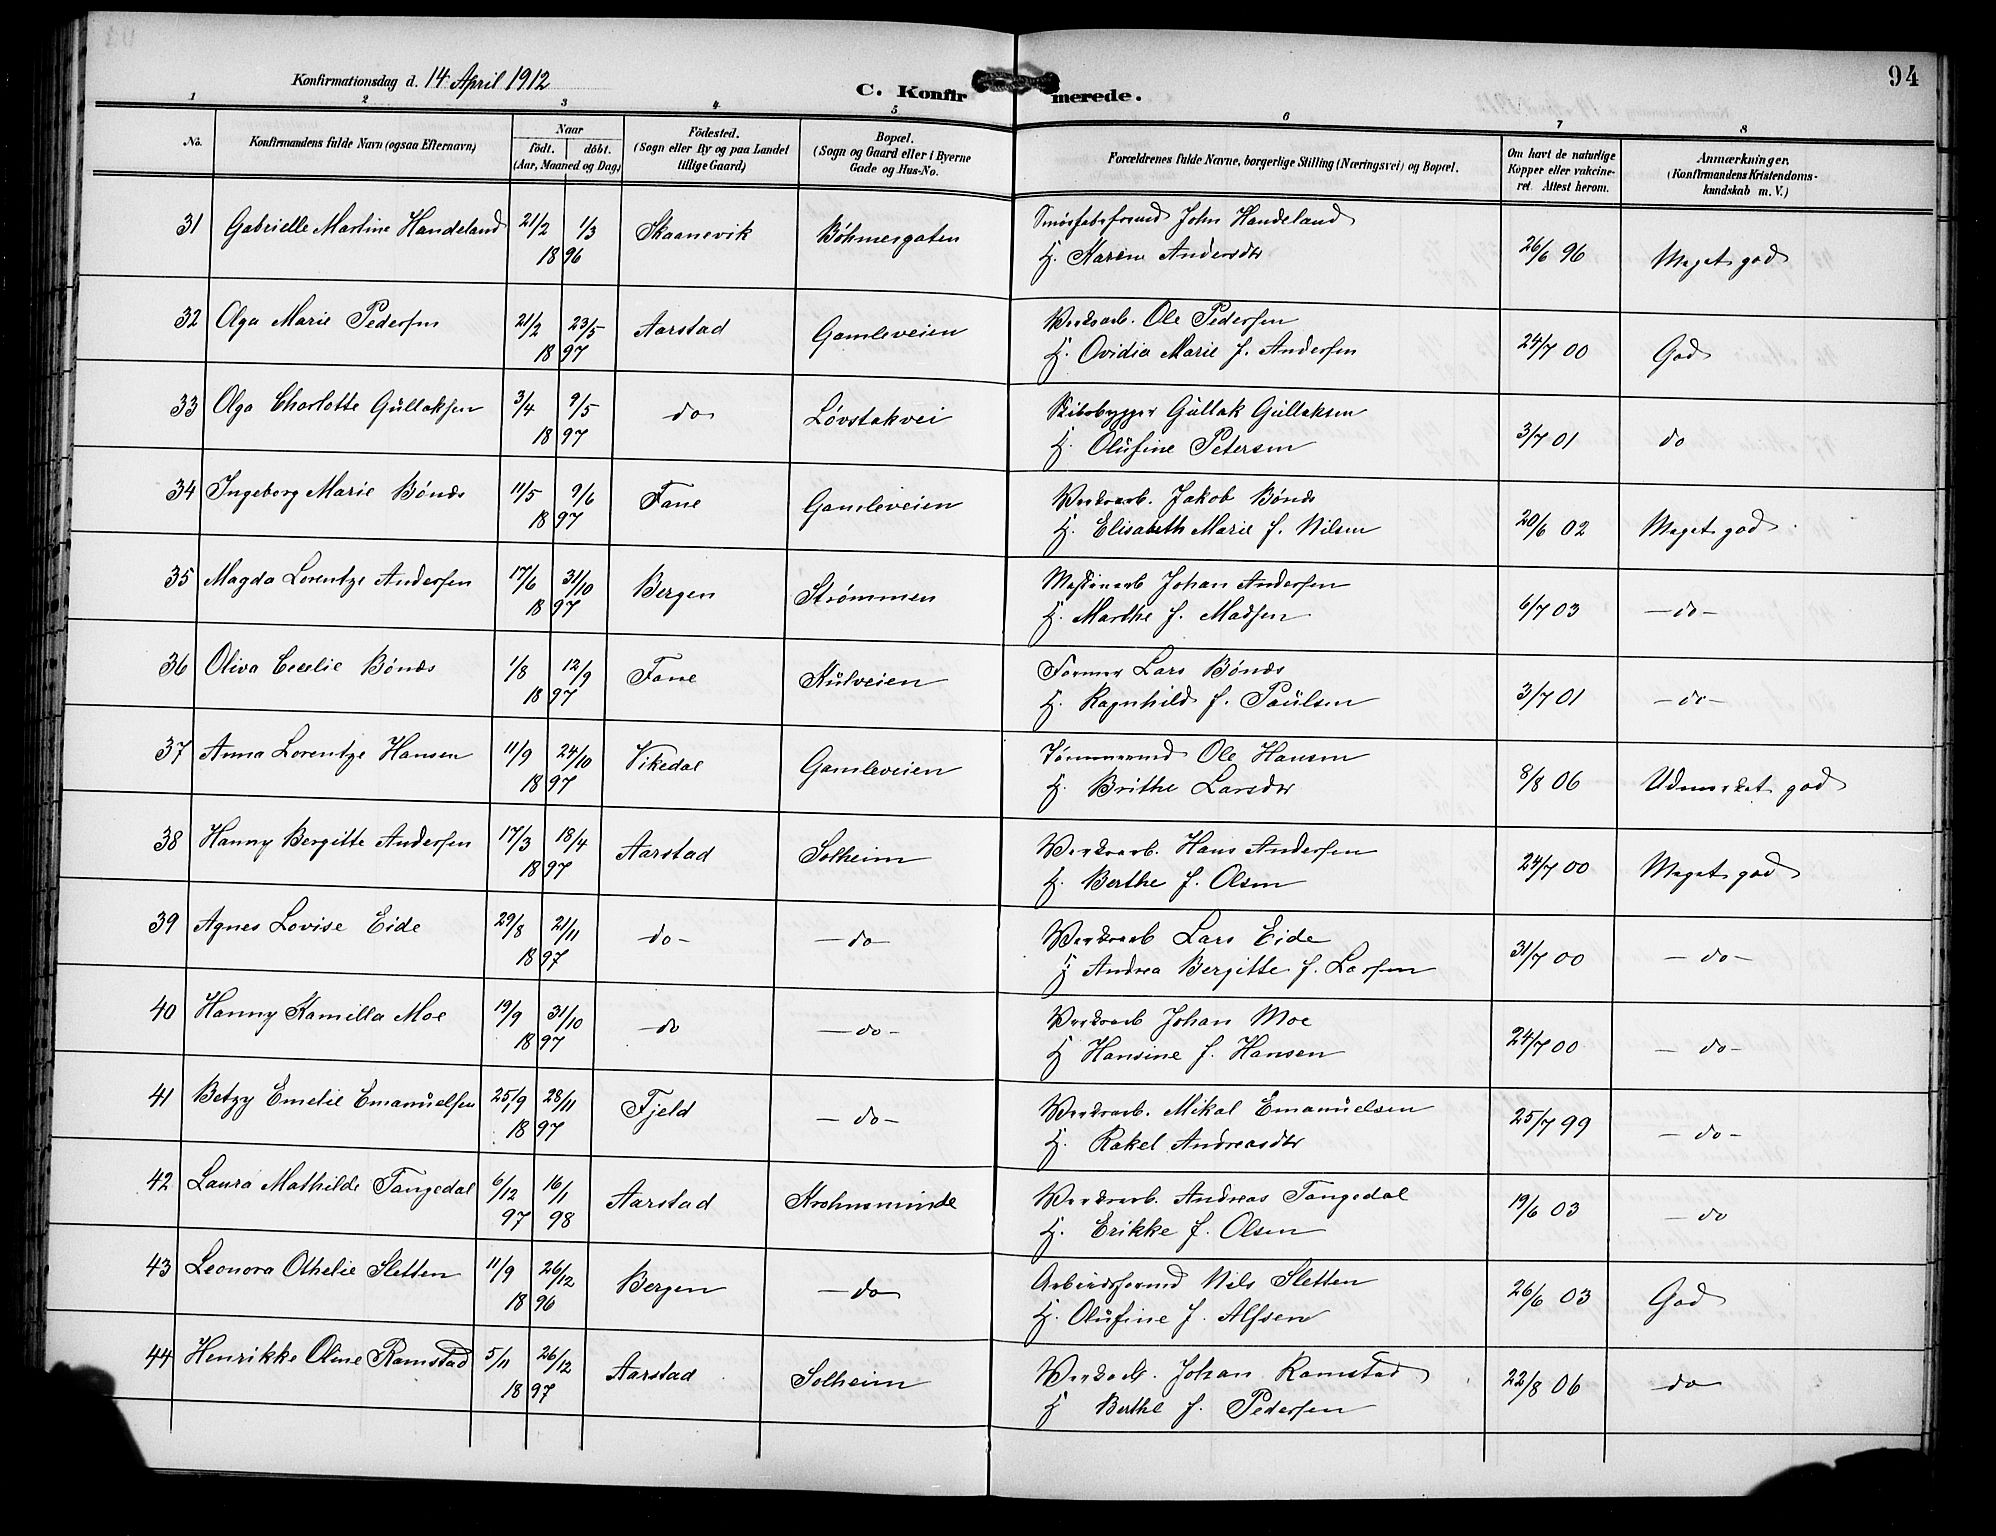 94
Konfirmationsdag d. 14 April 1912
C. Konfirmerede.
1 2 3 4 5 6 7 8
No. Konfirmandens fulde Navn (ogsaa Efternavn) Naar født. døbt. (Aar, Maaned og Dag) Födested. (Sogn eller By og paa Landet tillige Gaard) Bopæl. (Sogn og Gaard eller i Byerne Gade og Hus-No. Forældrenes fulde Navne, borgerlige Stilling (Næringsvei) og Bopæl. Om havt de naturlige Kopper eller vakcineret. Attest herom. Anmærkninger. (Konfirmandens Kristendomskundskab m. V.)
31 Gabrielle Martine Handeland 21/2 1/3 Skaanevik Bøhmergaten John Handeland
18 96 H. Karen Andersdtr 26/6 96 Meget god
32 Olga Marie Pedersen 21/2 23/5 Aarstad Gamleveien Verksarb. Ole Pedersen
18 97 H. Ovidia Marie f. Andersen 24/7 00 God
33 Olga Charlotte Gullaksen 3/4 9/5 do Løvstakvei Skibsbygger Gullak Gullaksen
18 97 H. Olufine Petersen 3/7 01 do
34 Ingeborg Marie Bønes 11/5 9/6 Fane Gamleveien Verksarb. Jakob Bønes
18 97 H. Elisabeth Marie f. Nilsen 20/6 02 Meget god
35 Magda Lorentze Andersen 17/6 31/10 Bergen Strømmen Maskinarb Johan Andersen
18 97 H. Marthe f. Madsen 6/7 03 - do -
36 Oliva Cecelie Bønes 1/8 12/9 Fane Kulveien Former Lars Bønes
18 97 H. Ragnhild f. Paulsen 3/7 01 - do -
37 Anna Lorentze Hansen 11/9 24/10 Vikedal Gamleveien Tømmermd Ole Hansen
18 97 H. Brithe Larsdtr 8/8 06 Udmerket god
38 Hanny Bergitte Andersen 17/3 18/4 Aarstad Solheim Verksarb. Hans Andersen
18 97 H. Berthe f. Olsen 24/7 00 Meget god
39 Agnes Lovise Eide 29/8 21/11 - do - - do - Verksarb Lars Eide
18 97 H Andrea Bergitte f. Larsen 31/7 00 - do -
40 Hanny Kamilla Moe 19/9 31/10 - do - do - Verksarb Johan Moe
18 97 H Hansine f. Hansen 24/7 00 - do -
41 Betzy Emelie Emanuelsen 25/9 28/11 Fjeld - do - Verksarb. Mikal Emanuelsen
18 97 H. Rakel Andreasdtr 25/7 99 - do -
42 Laura Mathilde Tangedal 6/12 16/1 Aarstad Krohnsminde Verksarb. Andreas Tangedal
97 98 H. Erikke f. Olsen 19/6 03 - do
43 Leonora Othelie Sletten 11/9 26/12 Bergen - do Arbeidsformd Nils Sletten
18 96 H. Olufine f. Alfsen 26/6 03 God
44 Henrikke Oline Ramstad 5/11 26/12 Aarstad Solheim Verksarb. Johan Ramstad
18 97 H Berthe f. Pedersen 22/8 06 do